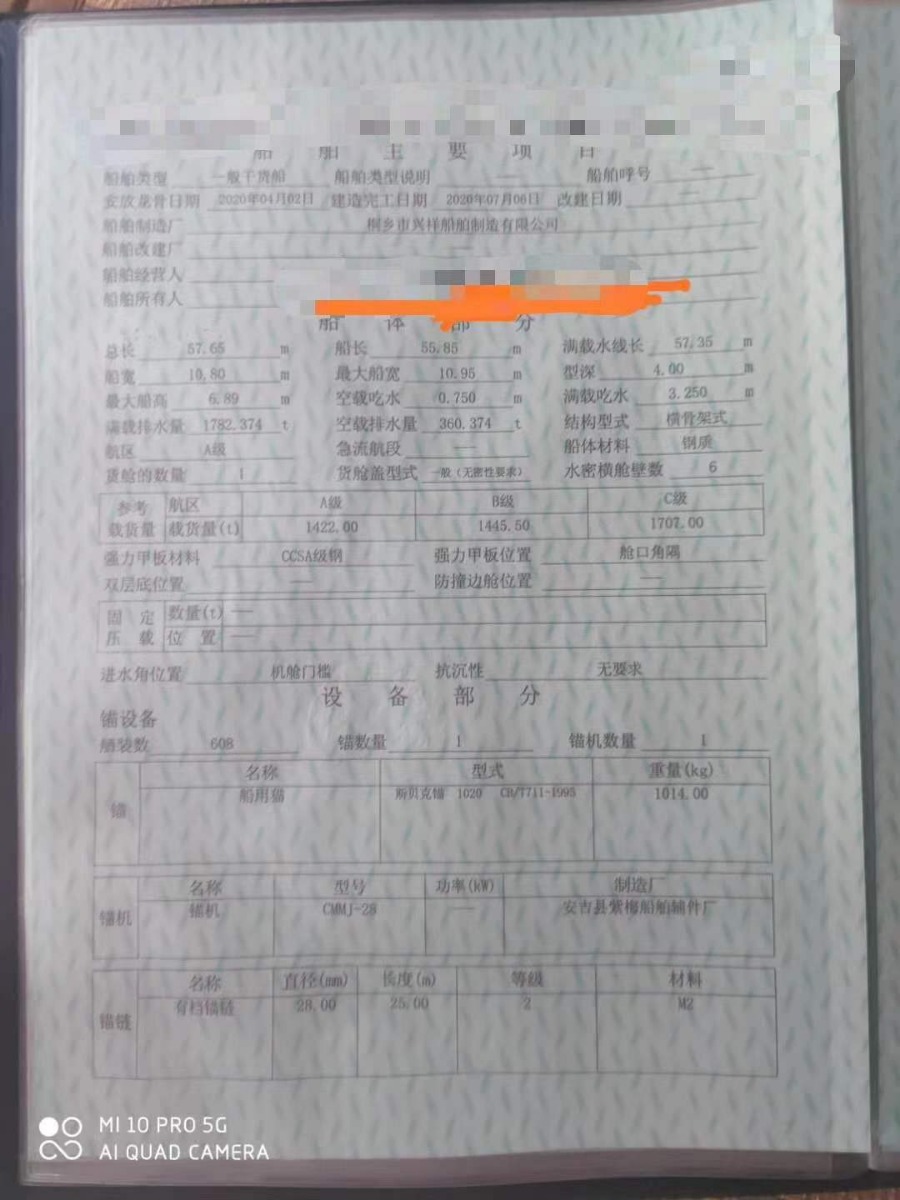 船 舶 主 要 项 目
船舶类型 一般干货船 船舶类型说明 — 船舶呼号 —
安放龙骨日期 2020年04月02日 建造完工日期 2020年07月06日 改建日期 —
船舶制造厂 桐乡市兴祥船舶制造有限公司
船舶改建厂
船舶经营人
船舶所有人
船 体 部 分
总长 57.65 m 船长 55.85 m 满载水线长 57.35 m
船宽 10.80 m 最大船宽 10.95 m 型深 4.00 m
最大船高 6.89 m 空载吃水 0.750 m 满载吃水 3.250 m
满载排水量 1782.374 t 空载排水量 360.374 t 结构型式 横骨架式
航区 A级 急流航段 — 船体材料 钢质
货舱的数量 1 货舱盖型式 一般（无密性要求） 水密横舱壁数 6
参考 航区 A级 B级 C级
载货量 载货量(t) 1422.00 1445.50 1707.00
强力甲板材料 CCSA级钢 强力甲板位置 舱口角隅
双层底位置 — 防撞边舱位置 —
固 定 数量(t) —
压 载 位 置 —
进水角位置 机舱门槛 抗沉性 无要求
设 备 部 分
锚设备
舾装数 608 锚数量 1 锚机数量 1
名称 型式 重量(kg)
锚 船用锚 斯贝克锚 1020 CB/T711-1995 1014.00
名称 型号 功率(kW) 制造厂
锚机 锚机 CMMJ-28 — 安吉县紫梅船舶辅件厂
名称 直径(mm) 长度(m) 等级 材料
锚链 有档锚链 28.00 25.00 2 M2
MI 10 PRO 5G
AI QUAD CAMERA